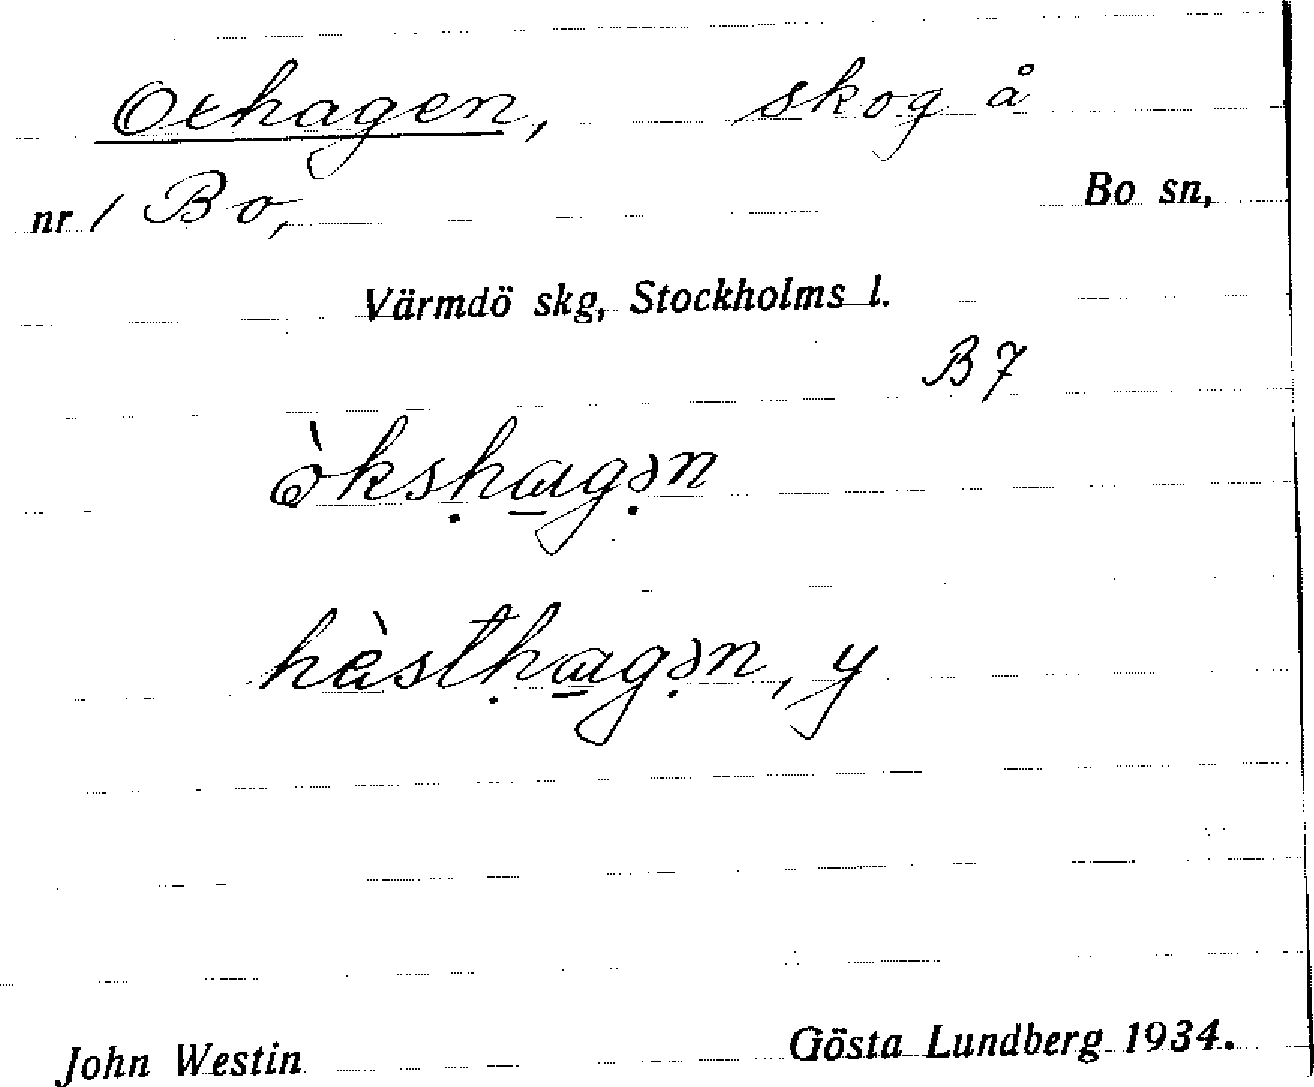 Oxhagen, skog å
nr 1 Bo, Bo sn,
Värmdö skg, Stockholms l.
B 7
òksḥa̲gə̣n
hèstḥa̲gə̣n, y
John Westin Gösta Lundberg 1934.